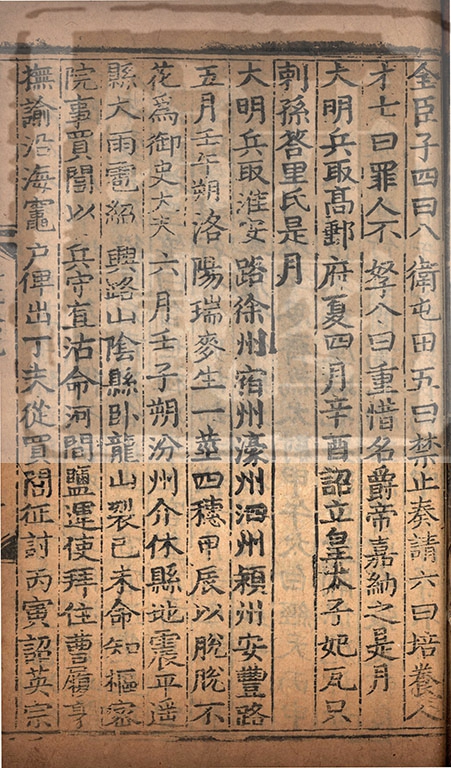 全臣子四曰八衛屯田五曰禁止奏請六曰培養人
才七曰罪人不孥八曰重惜名爵帝嘉納之是月
大明兵取高郵府夏四月辛酉詔立皇太子妃瓦只
剌孫荅里氏是月
大明兵取淮安路徐州宿州濠州泗州潁州安豐路
五月壬午朔洛陽瑞麥生一莖四穗甲辰以脫脫不
花爲御史大夫六月壬子朔汾州介休縣地震平遥
縣大雨雹紹興路山陰縣卧龍山裂己未命知樞密
院事買閭以兵守直沽命河間鹽運使拜住曹履亨
撫諭沿海竈户俾出丁夫從買閭征討丙寅詔英宗